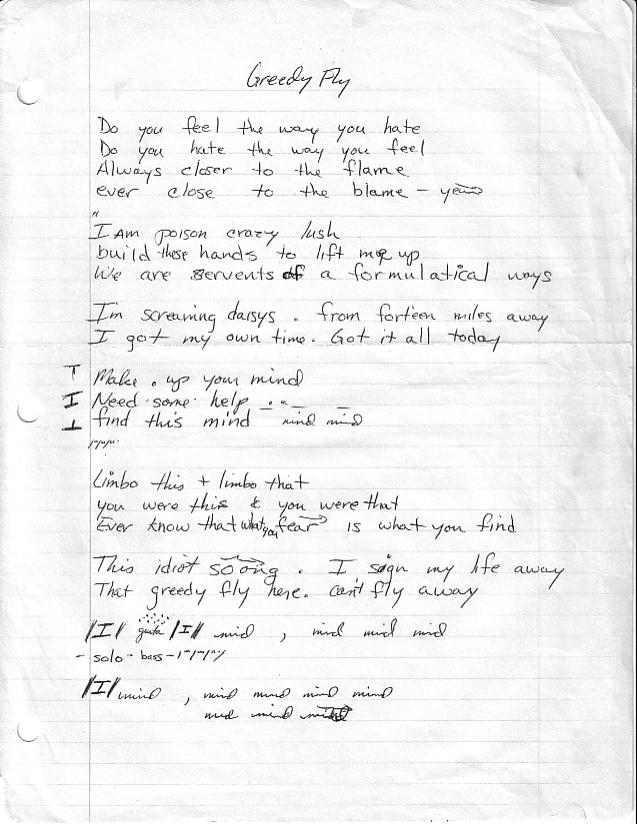 Greedy Fly
Do you feel the way you hate
Do you hate the way you feel
Always closer to the flame
ever close to the blame - yeah
I Am poison crazy lush
build these hands to lift me up
We are servents of a formulatical ways
I'm screaming daisys . from forteen miles away
I got my own time. Got it all today
Make . up your mind
I Need some help
find this mind mind mind
Limbo this + limbo that
you were this & you were that
Ever know that what you fear is what you find
This idiot soong . I sign my life away
That greedy fly here. can't fly away
/I/ guita /I/ mid , mid mid mid
- solo - bass -
/I/ mind , mind mind mind mind
mid mind